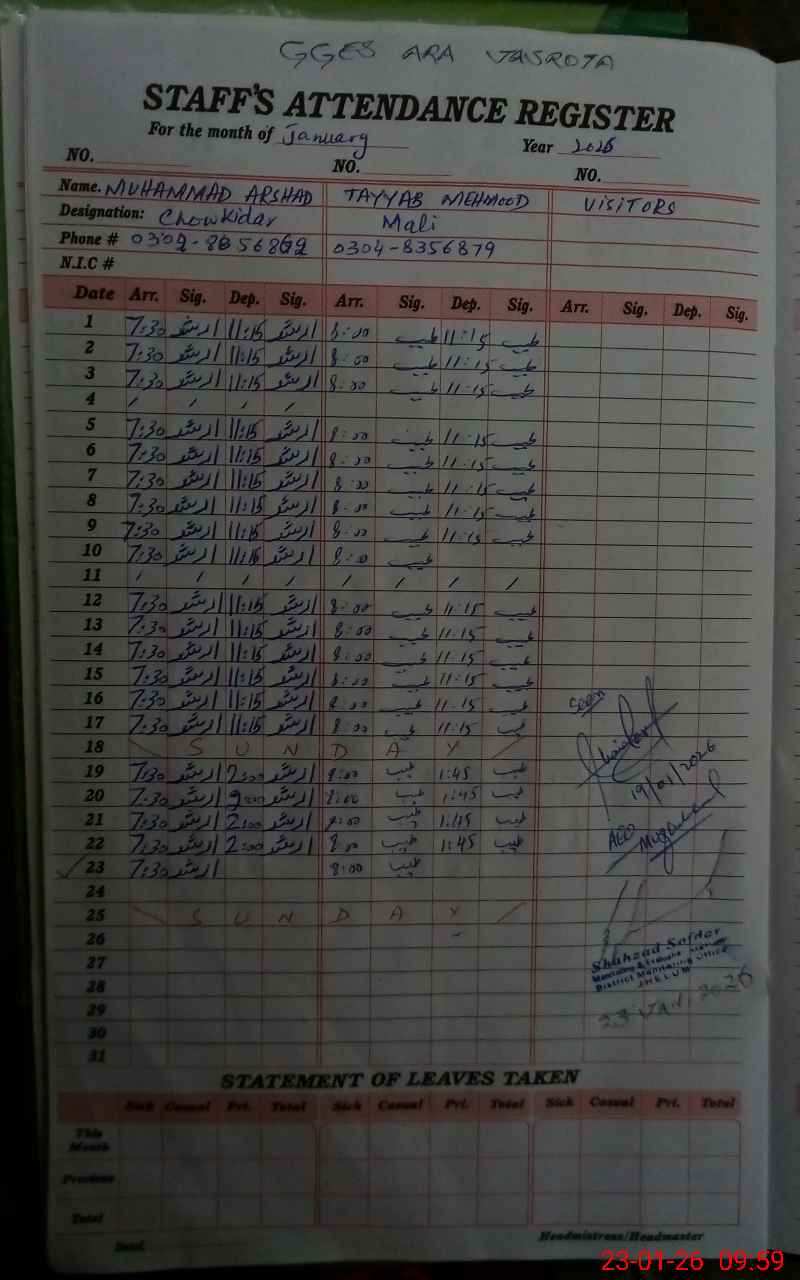 GGES ARA JASROTA
STAFF'S ATTENDANCE REGISTER
For the month of January Year 2026
NO. NO. NO.
Name. MUHAMMAD ARSHAD TAYYAB MEHMOOD VISITORS
Designation: Chowkidar Mali
Phone # 0304-8356879
N.I.C #
Date Arr. Sig. Dep. Sig. Arr. Sig. Dep. Sig. Arr. Sig. Dep. Sig.
1 7:30 ارشد 11:15 ارشد 8:00 طیب 11:15 طیب
2 7:30 ارشد 11:15 ارشد 8:00 طیب 11:15 طیب
3 7:30 ارشد 11:15 ارشد 8:00 طیب 11:15 طیب
4
5 7:30 ارشد 11:15 ارشد 8:00 طیب 11:15 طیب
6 7:30 ارشد 11:15 ارشد 8:00 طیب 11:15 طیب
7 7:30 ارشد 11:15 ارشد 8:00 طیب 11:15 طیب
8 7:30 ارشد 11:15 ارشد 8:00 طیب 11:15 طیب
9 7:30 ارشد 11:15 ارشد 8:00 طیب 11:15 طیب
10 7:30 ارشد 11:15 ارشد 8:00 طیب
11
12 7:30 ارشد 11:15 ارشد 8:00 طیب 11:15 طیب
13 7:30 ارشد 11:15 ارشد 8:00 طیب 11:15 طیب
14 7:30 ارشد 11:15 ارشد 8:00 طیب 11:15 طیب
15 7:30 ارشد 11:15 ارشد 8:00 طیب 11:15 طیب
16 7:30 ارشد 11:15 ارشد 8:00 طیب 11:15 طیب
17 7:30 ارشد 11:15 ارشد 8:00 طیب 11:15 طیب
Seen
18 S U N D A Y
19 7:30 ارشد 2:00 ارشد 8:00 طیب 1:45 طیب
19/01/2026
20 7:30 ارشد ارشد 8:00 طیب 1:45 طیب
21 7:30 ارشد 2:00 ارشد 8:00 طیب 1:45 طیب
AEO
22 7:30 ارشد 2:00 ارشد 8:00 طیب 1:45 طیب
23 7:30 ارشد 8:00 طیب
24
25 S U N D A Y
26
Shahzad Safdar
27
District Monitoring Office
28
JHELUM
23 JAN 2026
29
30
31
STATEMENT OF LEAVES TAKEN
Sick Casual Pvt. Total Sick Casual Pvt. Total Sick Casual Pvt. Total
This Month
Previous
Total
Headmistress/Headmaster
23-01-26 09:59